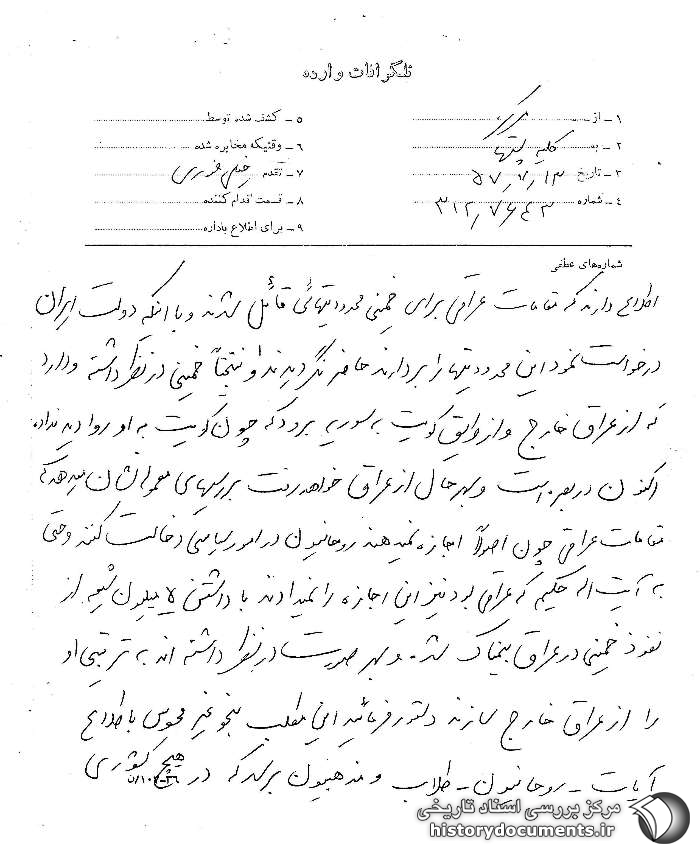 تلگرافات وارده
۱ - از مرکز
۲ - به کلیه پستها
۳ - تاریخ ۵۷٫۷٫۱۳
۴ - شماره ۳۱۲٫۷۶۴۳
۵ - کشف شده توسط
۶ - وقتیکه مخابره شده
۷ - تقدم خیلی فوری
۸ - قسمت اقدام کننده
۹ - برای اطلاع باداره
شماره‌های عطفی
اطلاع دارند که مقامات عراقی برای خمینی محدودیتهائی قائل شدند و با آنکه دولت ایران
درخواست نمود این محدودیتها را بردارند حاضر نگردیدند و نتیجتاً خمینی در نظر داشته و دارد
که از عراق خارج و از طریق کویت به سوریه برود که چون کویت به او روادید نداد،
اکنون در بصره است و بهرحال از عراق خواهد رفت بررسیهای معموله نشان میدهد که
مقامات عراقی چون اصولاً اجازه نمیدهند روحانیون در امور سیاسی دخالت کنند و حتی
به آیت اله حکیم که عراقی بود نیز این اجازه را نمیدادند با داشتن میلیون شیعه از
نفوذ خمینی در عراق بیمناک شد. و بهر صورت در نظر داشته اند به ترتیبی او
را از عراق خارج سازند دستور فرمائید این مطلب بنحو غیر محسوس باطلاع
آیات - روحانیون - طلاب و مذهبیون برسد که در هیچ کشوری
مرکز بررسی اسناد تاریخی
historydocuments.ir